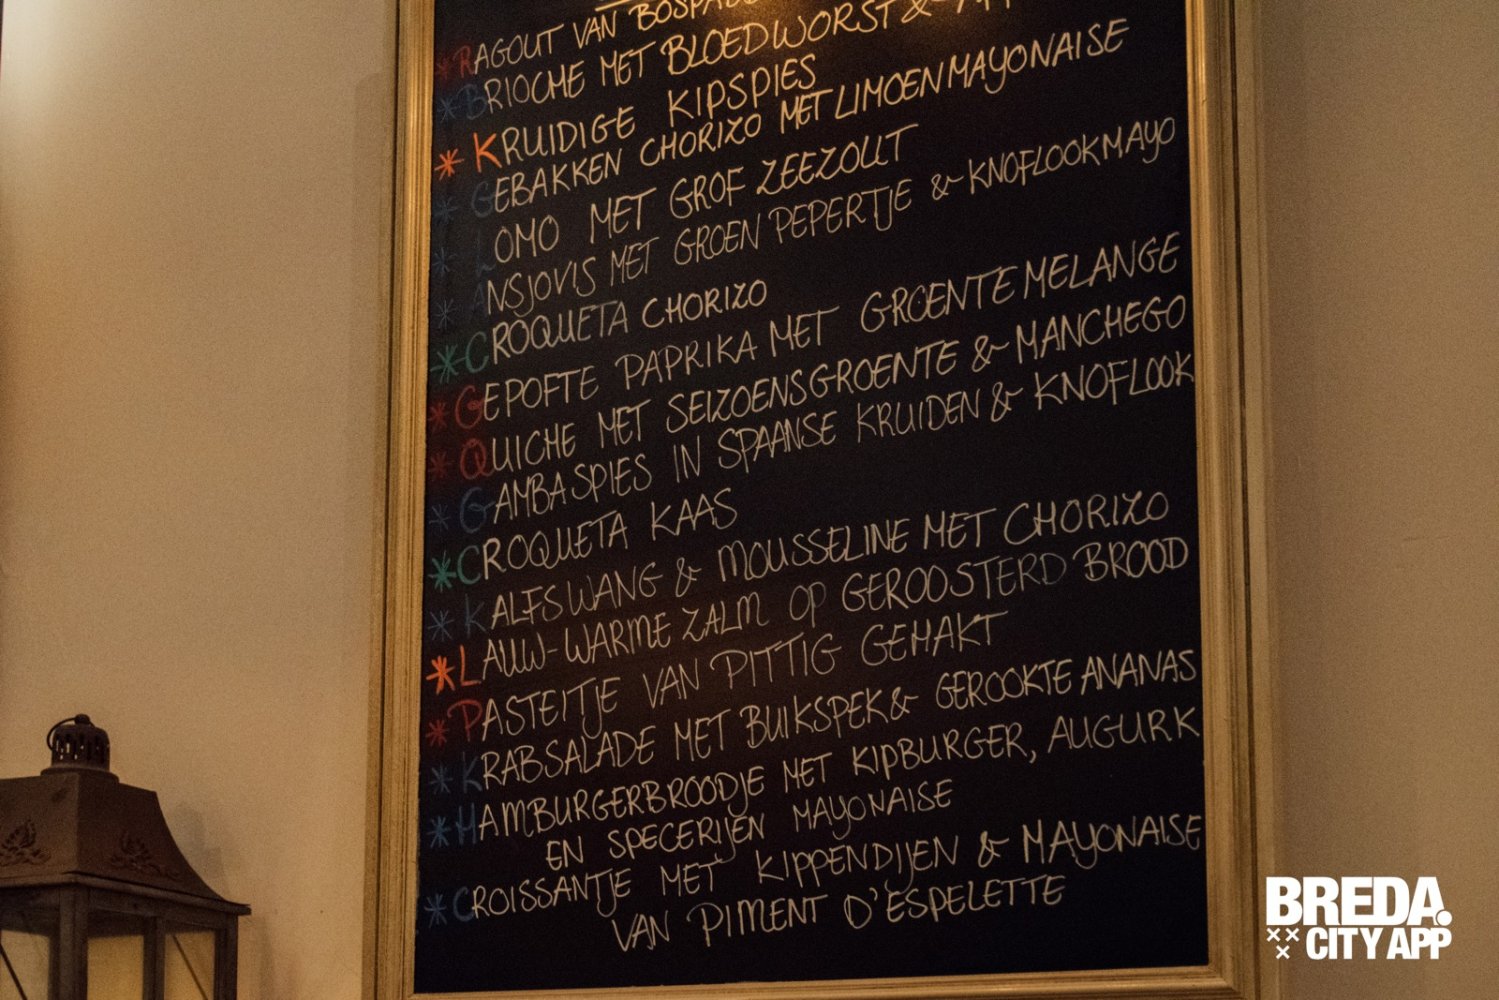 *RAGOUT VAN
*BRIOCHE MET BLOEDWORST &
*KRUIDIGE KIPSPIES
*GEBAKKEN CHORIZO MET LIMOENMAYONAISE
*LOMO MET GROF ZEEZOUT
*ANSJOVIS MET GROEN PEPERTJE & KNOFLOOKMAYO
*CROQUETA CHORIZO
*GEPOFTE PAPRIKA MET GROENTEMELANGE
*QUICHE MET SEIZOENSGROENTE & MANCHEGO
*GAMBASPIES IN SPAANSE KRUIDEN & KNOFLOOK
*CROQUETA KAAS
*KALFSWANG & MOUSSELINE MET CHORIZO
*LAUW-WARME ZALM OP GEROOSTERD BROOD
*PASTEITJE VAN PITTIG GEHAKT
*KRABSALADE MET BUIKSPEK & GEROOKTE ANANAS
*HAMBURGERBROODJE MET KIPBURGER, AUGURK
EN SPECERIJEN MAYONAISE
*CROISSANTJE MET KIPPENDIJEN & MAYONAISE
VAN PIMENT D'ESPELETTE
BREDA.
CITY APP